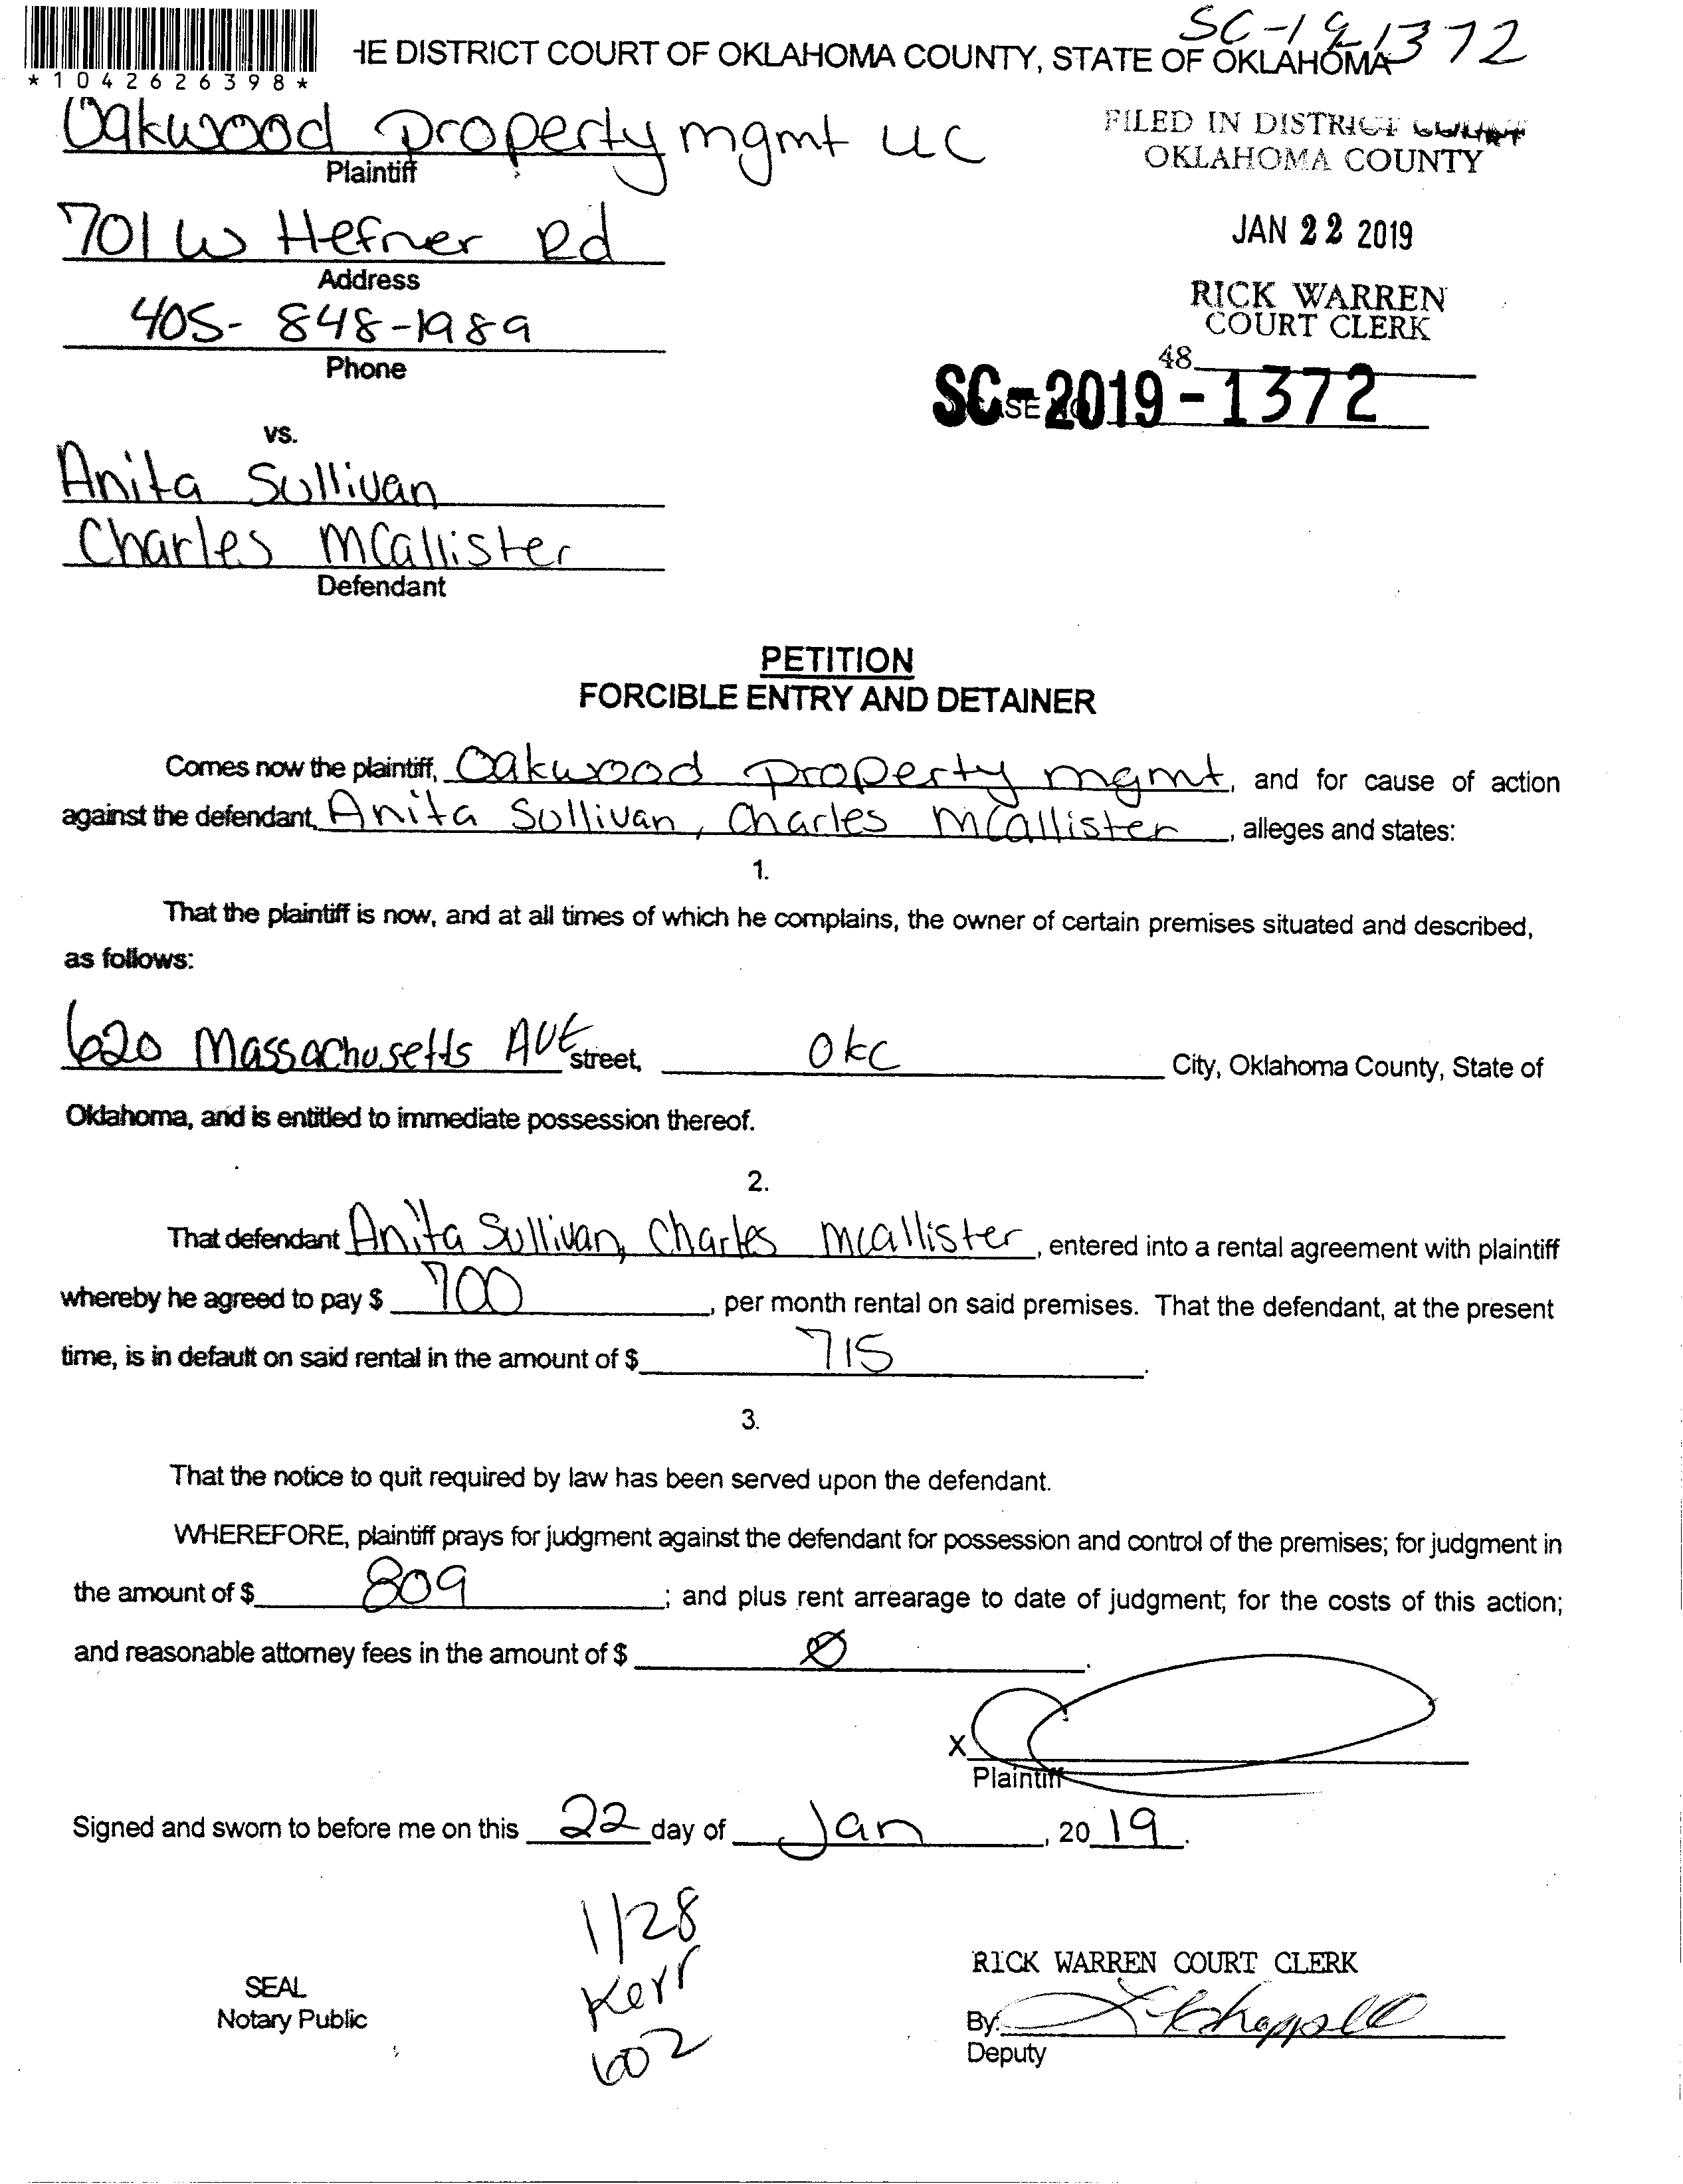 SC-19-1372
HE DISTRICT COURT OF OKLAHOMA COUNTY, STATE OF OKLAHOMA
*1042626398*
Oakwood property mgmt LLC
Plaintiff
FILED IN DISTRICT COURT
OKLAHOMA COUNTY
701 W Hefner Rd
Address
JAN 22 2019
405-848-1989
Phone
RICK WARREN
COURT CLERK
48
SC-2019-1372
vs.
Anita Sullivan
Charles McAllister
Defendant
PETITION
FORCIBLE ENTRY AND DETAINER
Comes now the plaintiff, Oakwood property mgmt, and for cause of action
against the defendant, Anita Sullivan, Charles McAllister, alleges and states:
1.
That the plaintiff is now, and at all times of which he complains, the owner of certain premises situated and described,
as follows:
620 Massachusetts AVE street, OKC City, Oklahoma County, State of
Oklahoma, and is entitled to immediate possession thereof.
2.
That defendant Anita Sullivan, Charles McAllister, entered into a rental agreement with plaintiff
whereby he agreed to pay $ 700, per month rental on said premises. That the defendant, at the present
time, is in default on said rental in the amount of $ 715.
3.
That the notice to quit required by law has been served upon the defendant.
WHEREFORE, plaintiff prays for judgment against the defendant for possession and control of the premises; for judgment in
the amount of $ 809; and plus rent arrearage to date of judgment; for the costs of this action;
and reasonable attorney fees in the amount of $ Ø.
X
Plaintiff
Signed and sworn to before me on this 22 day of Jan, 2019.
1/28
Kerr
602
SEAL
Notary Public
RICK WARREN COURT CLERK
By:
Deputy